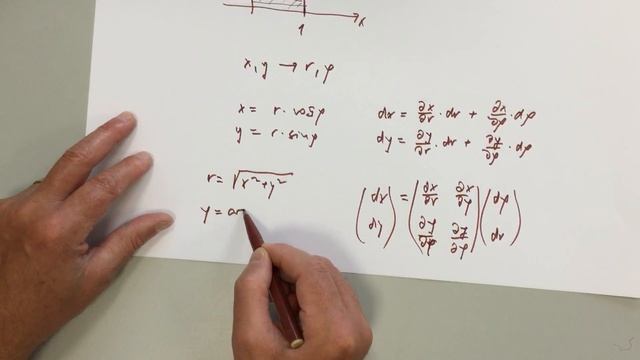 x
1
x, y → r, φ
x = r · cosφ
y = r · sinφ
dx = ∂x/∂r · dr + ∂x/∂φ · dφ
dy = ∂y/∂r · dr + ∂y/∂φ · dφ
r = √x²+y²
φ = ar
(dx) = (∂x/∂r ∂x/∂φ) (dφ)
(dy) (∂y/∂φ ∂y/∂φ) (dr)